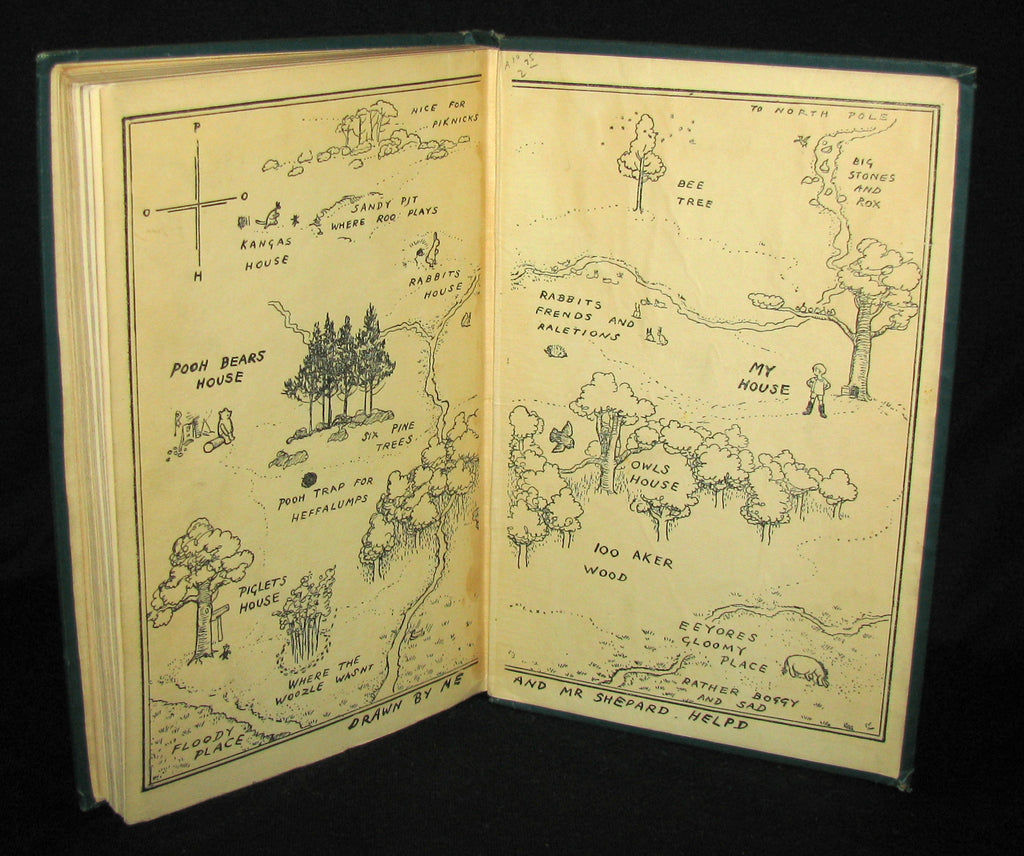 NICE FOR
PIKNICKS
P
O
O
H
SANDY PIT
WHERE ROO PLAYS
KANGAS
HOUSE
RABBITS
HOUSE
POOH BEARS
HOUSE
SIX PINE
TREES.
POOH TRAP FOR
HEFFALUMPS
PIGLETS
HOUSE
WHERE THE
WOOZLE WASNT
FLOODY
PLACE
DRAWN BY ME
TO NORTH POLE
BIG
STONES
AND
ROX
BEE
TREE
RABBITS
FRENDS AND
RALETIONS
MY
HOUSE
OWLS
HOUSE
100 AKER
WOOD
EEYORES
GLOOMY
PLACE
RATHER BOGGY
AND SAD
AND MR SHEPARD HELPD